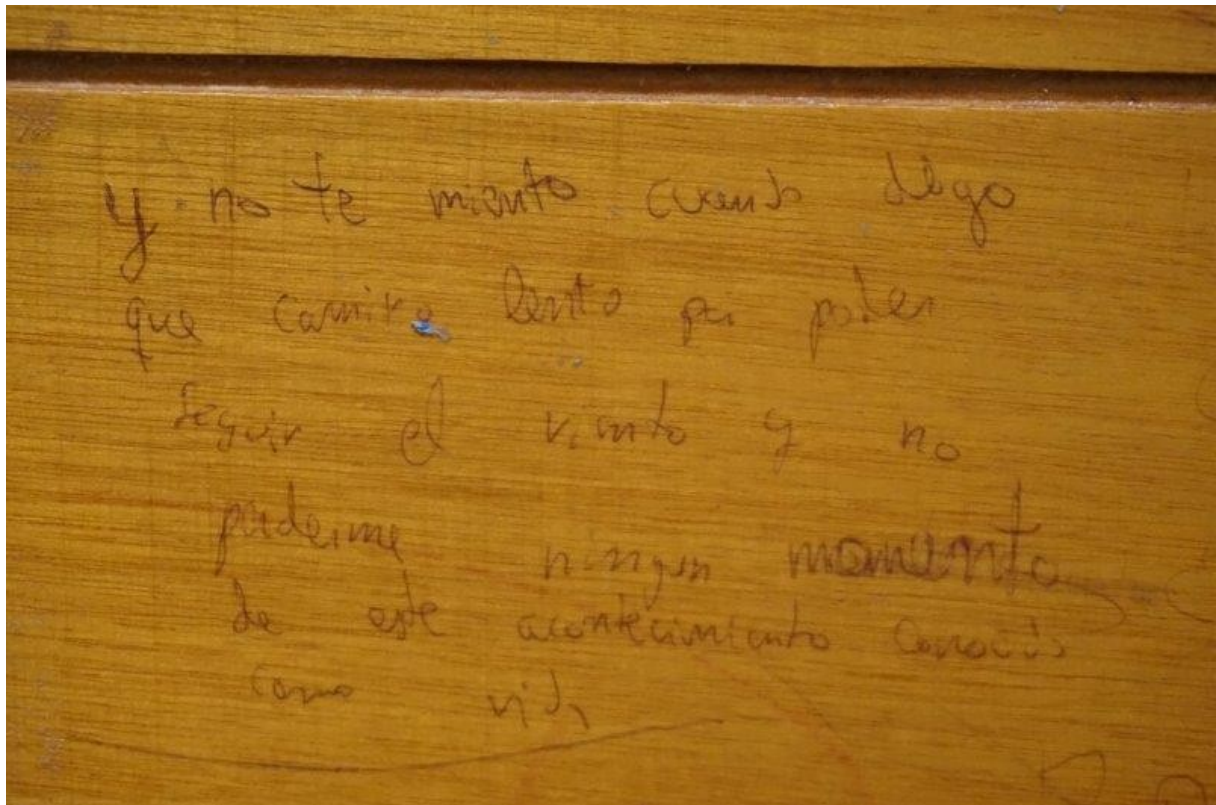 y no te miento cuando digo
que camino lento por poder
seguir el viento y no
perderme ningun momento
de este acontecimiento conocido
como vida